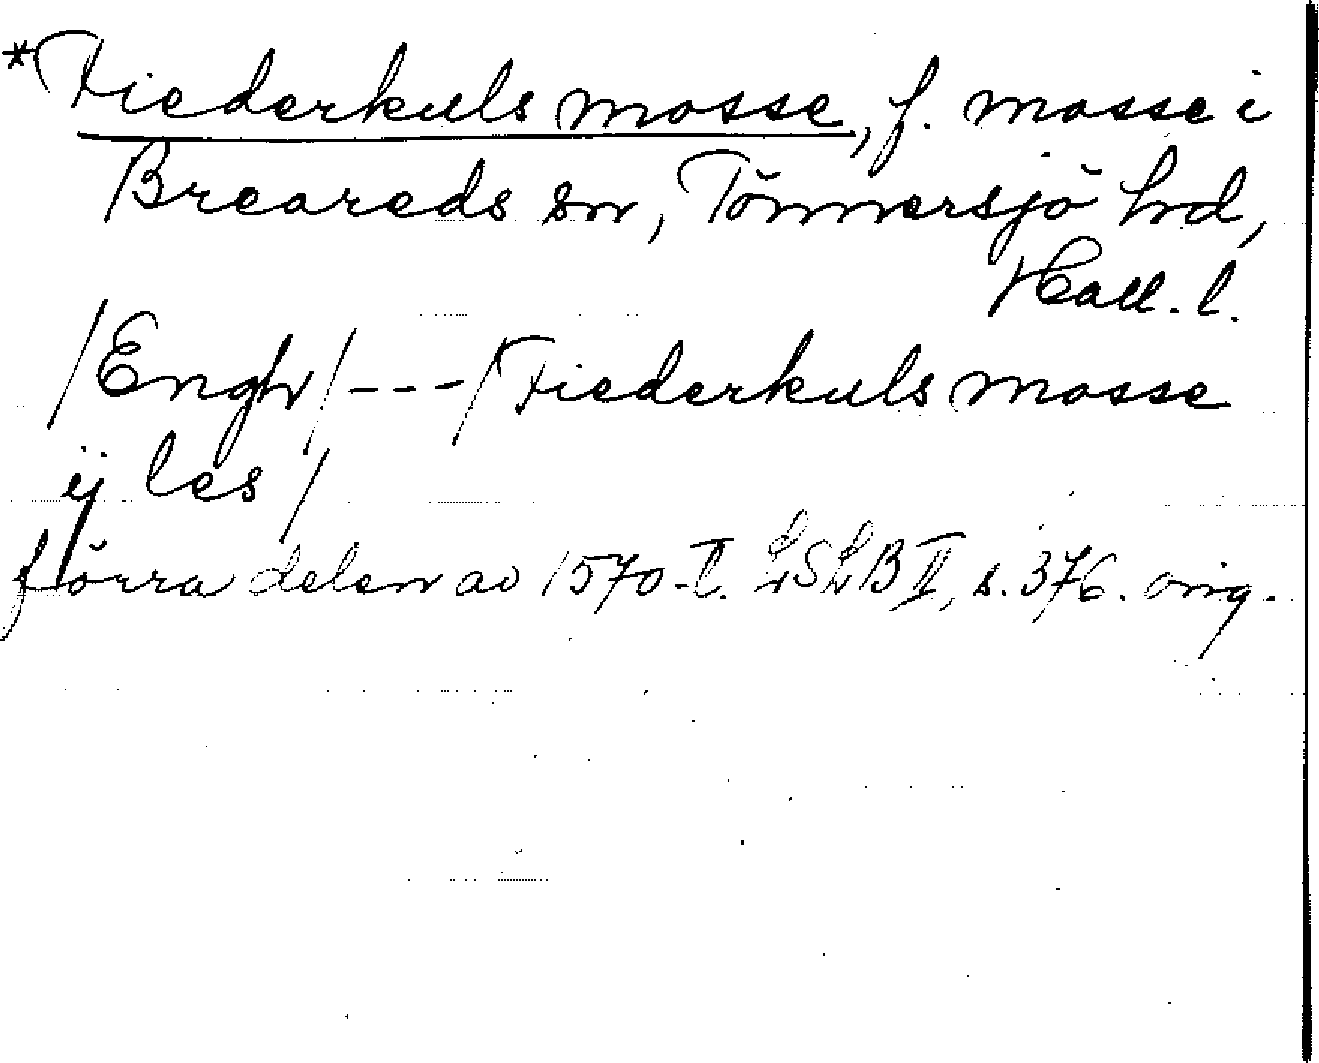 *Fiederkuls mosse, f. mosse i
Breareds sn, Tönnersjö hd,
Hall. l.
/Engh/ --- /Fiederkuls mosse
ij les /
förra delen av 1570-t. LSLB II, s. 376. orig.